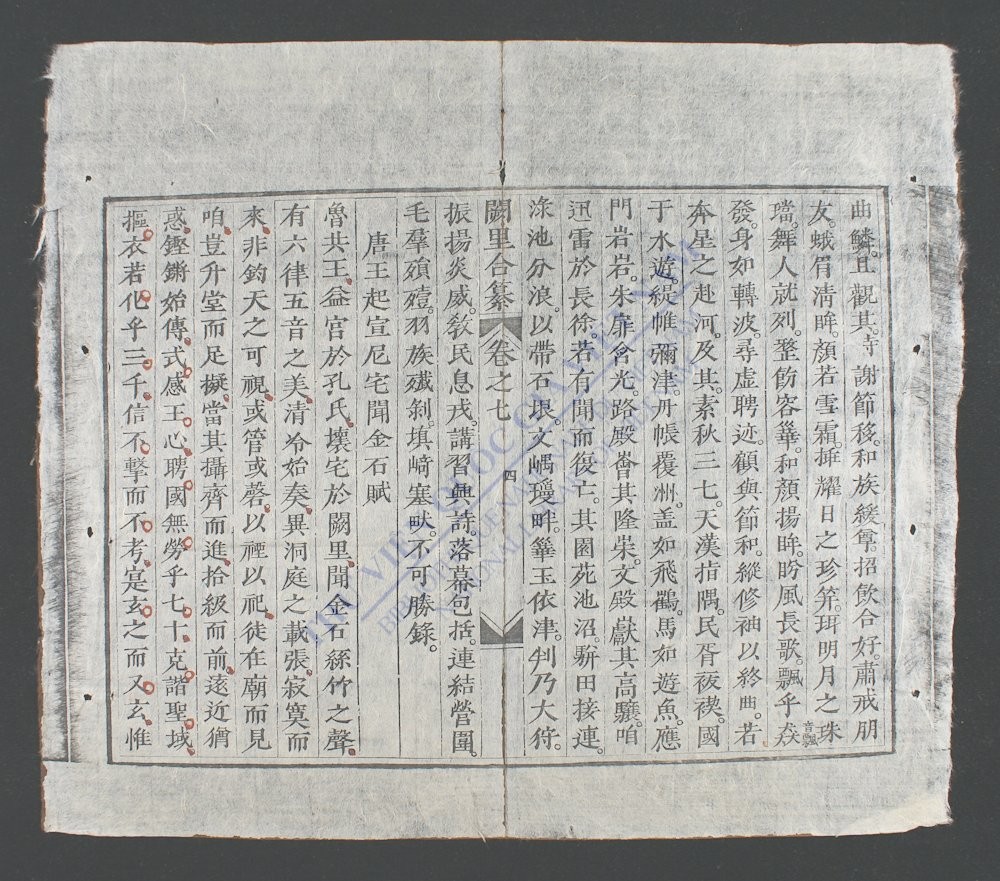 曲鱗。且觀其。時謝節移。和族綏尊。招飲合好。肅戒朋
友。蛾眉清眸。顏若雪霜。摧耀日之珍筓。珥明月之珠
璫。舞人就列。整飭容華。和顏揚眸。盼風長歌。飄乎猋
發。身如轉波。尋虛聘迹。顧與節和。縱修袖以終曲。若
奔星之赴河。及其。素秋三七。天漢指隅。民胥祓禊。國
于水遊。緹帷彌津。丹帳覆州。盖如飛鸖。馬如遊魚。應
門岩岩。朱扉含光。路殿其隆崇。文殿獻其高驤。咱
迅雷於長徐。若有聞而復亡。其園苑池沼。駢田接連。
淥池分浪。以帶石垠。文嵎璦畔。華玉依津。判乃大狩。
闕里合纂 卷之七 四
振揚炎威。敎民息戎。講習興詩。落幕包括。連結營圍。
毛羣殞殪。羽族殲剝。填﨑塞畎。不可勝錄。
唐王起宣尼宅聞金石賦
魯共王。益宮於孔氏。壞宅於闕里。聞金石絲竹之聲。
有六律五音之美。清冷始奏。異洞庭之載張。寂寞而
來。非鈞天之可視。或管或磬。以禋以祀。徒在廟而見
咱。豈升堂而足擬。當其攝齊而進。拾級而前。遠近猶
惑。鏗鏘始傳。式感王心。聘國無勞乎七十。克諧聖域。
摳衣若化乎三千。信不擊而不考。寔玄之而又玄。惟
VIEN QUOC GIA VIET NAM